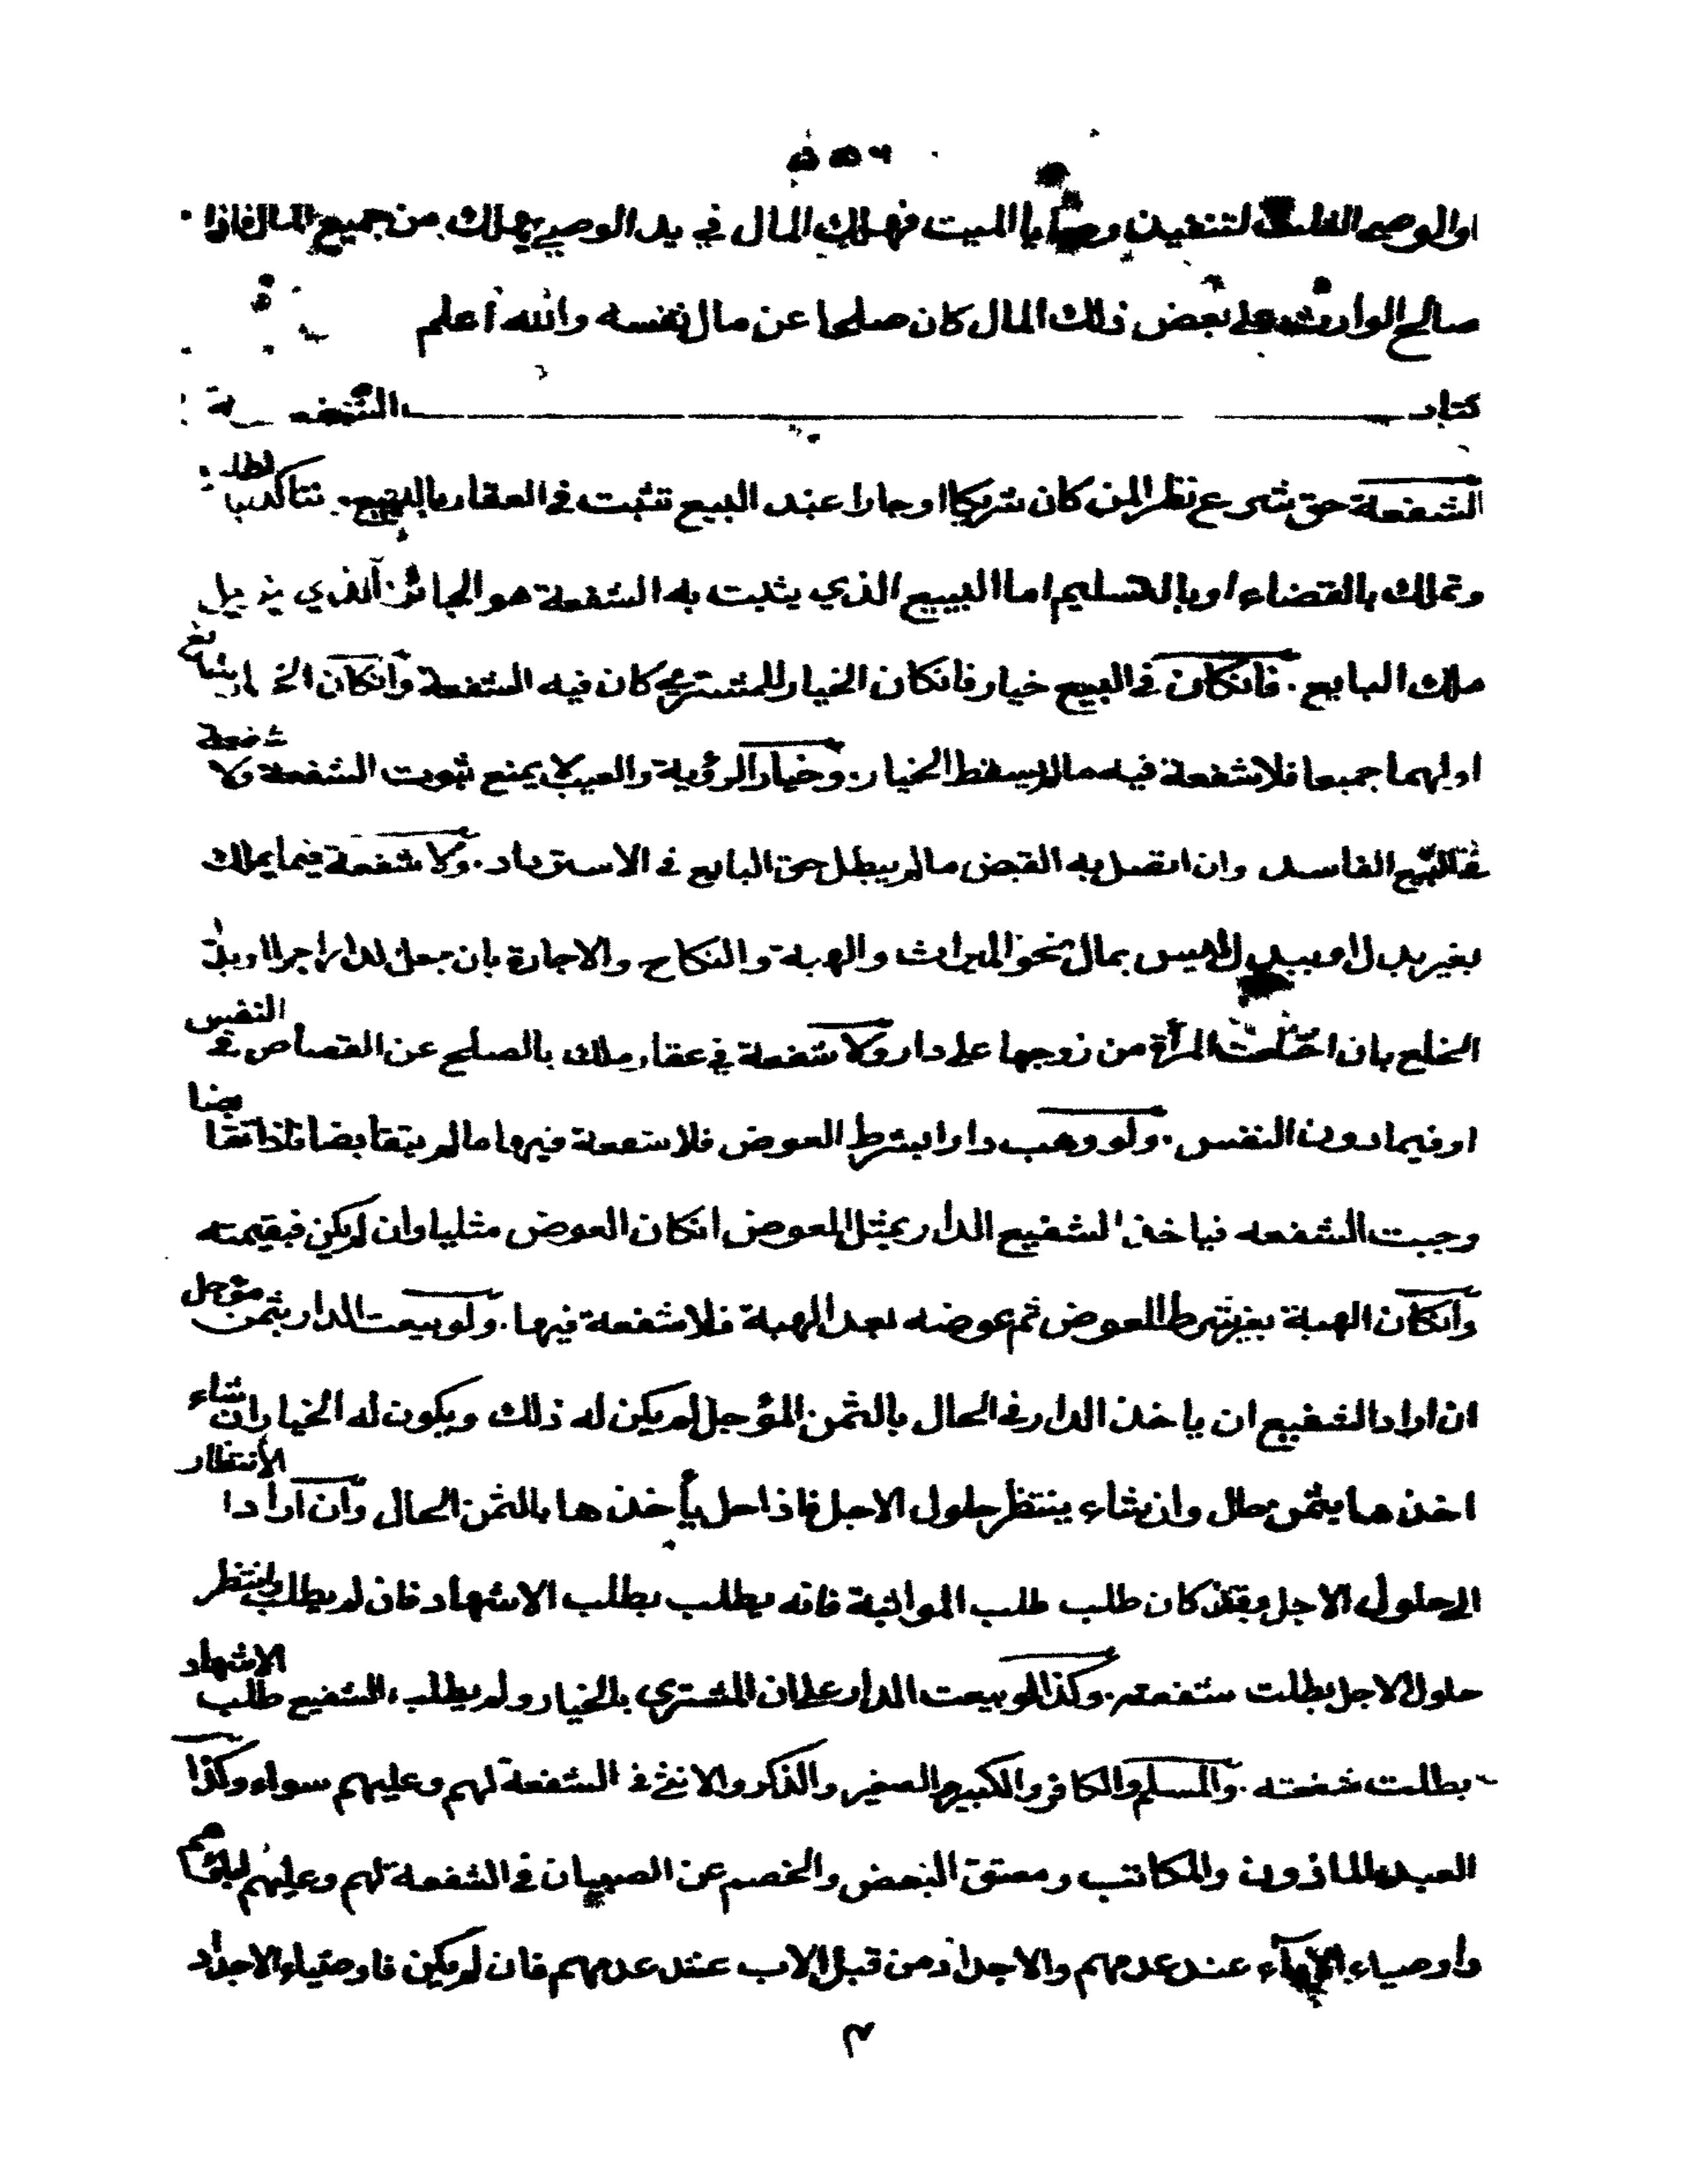 او الوصي الثلث لتنفيذ وصايا الميت فهلك المال في يد الوصي يهلك من جميع المال فاذا
صالح الوارث على بعض ذلك المال كان صلحا عن مال نفسه والله أعلم
كتاب الشفعة
الشفعة حق شرع نظرا لمن كان شريكا او جارا عند البيع تثبت في العقار بالبيع. تتاكد بالطلب
وتملك بالقضاء او بالتسليم اما البيع الذي يثبت به الشفعة هو الجائز الذي يزيل
ملك البايع. فانكان في البيع خيار فانكان الخيار للمشتري كان فيه الشفعة وانكان الخيار للبائع
اولهما جميعا فلا شفعة فيه مالم يسقط الخيار. وخيار الرؤية والعيب لا يمنع ثبوت الشفعة ولا شفعة
في البيع الفاسد وان اتصل به القبض مالم يبطل حق البايع في الاسترداد. ولا شفعة فيما يملك
بغير بدل او ببدل ليس بمال نحو الميراث والهبة والنكاح والاجارة بان جعل الدار اجرا او بدل
الخلع بان اختلعت المرأة من زوجها على دار ولا شفعة في عقار ملك بالصلح عن القصاص في النفس
او فيما دون النفس. ولو وهب دارا بشرط العوض فلا شفعة فيها مالم يتقابضا فاذا تقابضا
وجبت الشفعه فياخذ الشفيع الدار بمثل العوض انكان العوض مثليا وان لم يكن فبقيمته
وانكان الهبة بغير شرط العوض ثم عوضه بعد الهبة فلا شفعة فيها. ولو بيعت الدار بثمن مؤجل
ان اراد الشفيع ان ياخذ الدار في الحال بالثمن المؤجل لم يكن له ذلك ويكون له الخيار ان شاء
اخذها بثمن حال وان شاء ينتظر حلول الاجل فاذا حل يأخذها بالثمن الحال وان اراد الانتظار
الى حلول الاجل وقد كان طلب طلب المواثبة فانه يطلب بطلب الاشهاد فان لم يطلب وانتظر
حلول الاجل بطلت شفعته. وكذا لو بيعت الدار على ان المشتري بالخيار ولم يطلب الشفيع طلب الاشهاد
بطلت شفعته. والمسلم والكافر والكبير والصغير والذكر والانثى في الشفعة لهم وعليهم سواء وكذا
العبد الماذون والمكاتب ومعتق البعض والخصم عن الصبيان في الشفعة لهم وعليهم اباؤهم
واوصياء الآباء عند عدمهم والاجداد من قبل الاب عند عدمهم فان لم يكن فاوصياء الاجداد